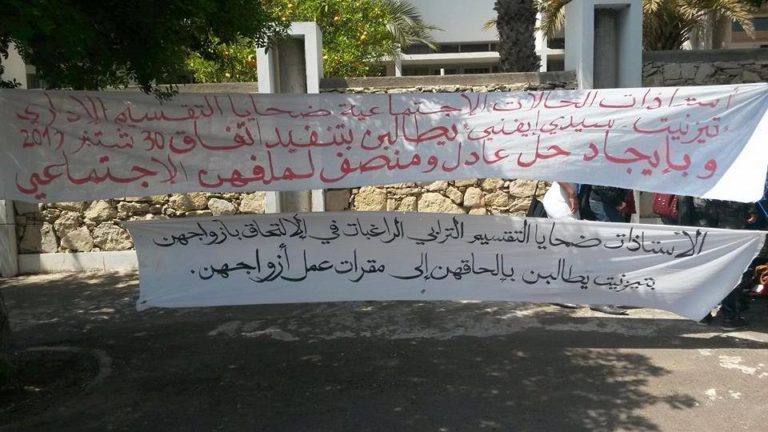 أستاذات الحالات الإجتماعية ضحايا التقسيم الإداري
تيزنيت - سيدي إيفني يطالبن بتنفيذ اتفاق 30 شتنبر 2013
و بإيجاد حل عادل و منصف لملفهن الاجتماعي
الاستاذات ضحايا التقسيم الترابي الراغبات في الإلتحاق بأزواجهن
بتيزنيت يطالبن بإلحاقهن إلى مقرات عمل أزواجهن.